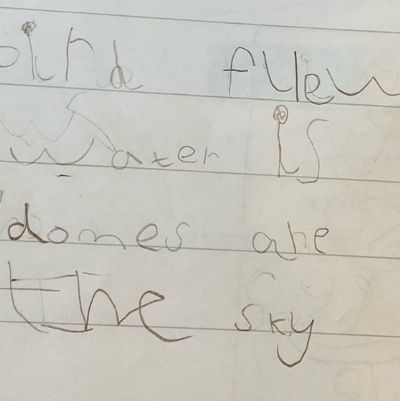 bird flew
water is
domes are
the sky